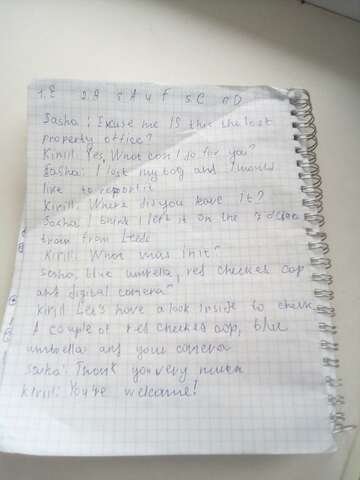 1.E 2.B 3 A 4 F 5 C 6 D
Sasha: Excuse me Is this the lost
property office?
Kirill: Yes, What can I do for you?
Sasha: I lost my bag and I would
like to report it
Kirill: Where did you leave it?
Sasha: I think I left it on the 7 o'clock
train from Leeds
Kirill: What was in it?
Sasha: blue umbrella, red checked cap
and digital camera
Kirill Let's have a look inside to check
A couple of red checked cap, blue
umbrella and your camera
Sasha: Thank you very much
Kirill: You're welcome!